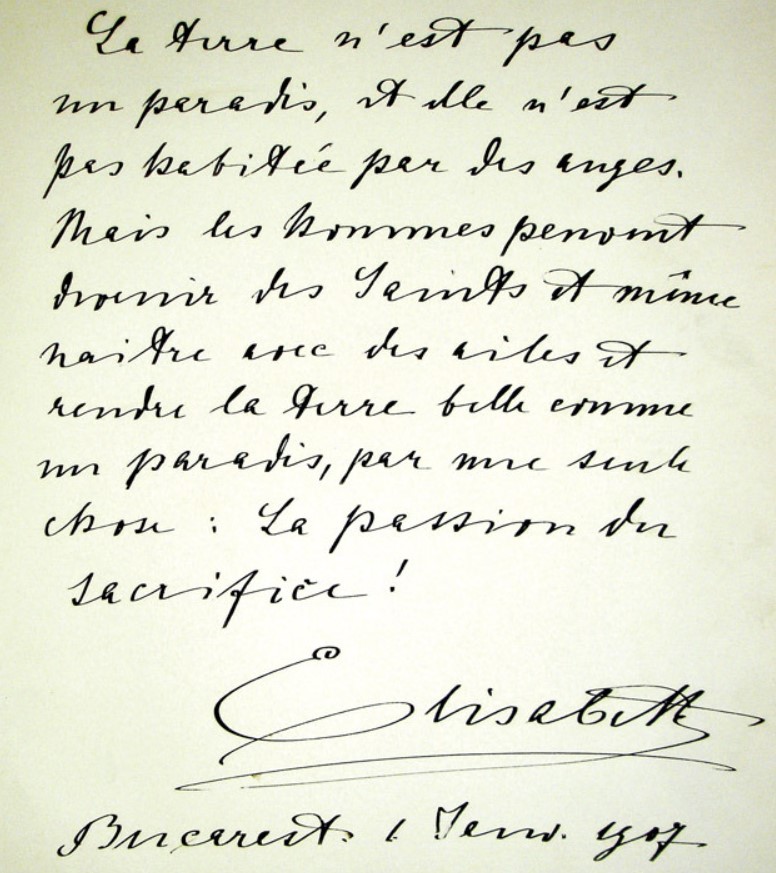 La terre n'est pas
un paradis, et elle n'est
pas habitée par des anges.
Mais les hommes peuvent
devenir des Saints et même
naitre avec des ailes et
rendre la terre belle comme
un paradis, par une seule
chose : La passion du
sacrifice !
Elisabeth
Bucarest. 1 Janv. 1907